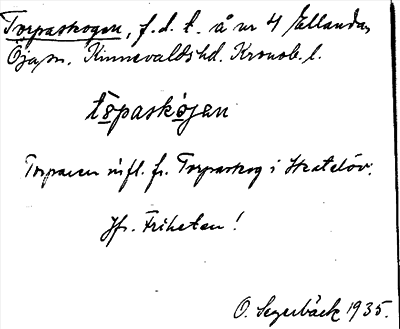 Torpaskogen, f.d.t. å nr 4 Ellanda,
Öja sn. Kinnevalds hd. Kronob. l.
tōpaskōjen
Torparen infl. fr. Torpaskog i Skatelöv.
Jfr. Friheten!
O. Segerbäck 1935.